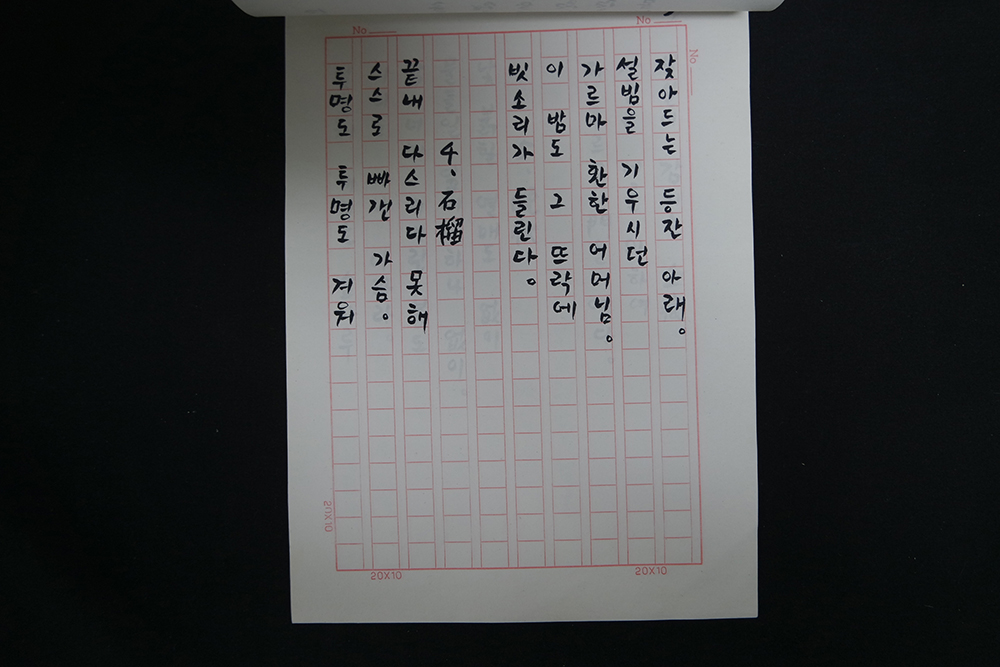 No
No
No
잦아드는 등잔 아래。
설빔을 기우시던
가르마 환한 어머님。
이 밤도 그 뜨락에
빗소리가 들린다。
4、石榴
끝내 다스리다 못해
스스로 빠갠 가슴。
투명도 투명도 겨워
20X10
20X10
20X10